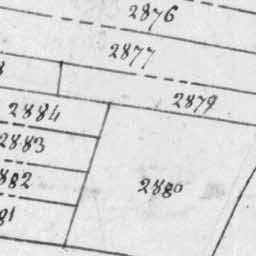 2876
2877
2879
2884
2883
2880